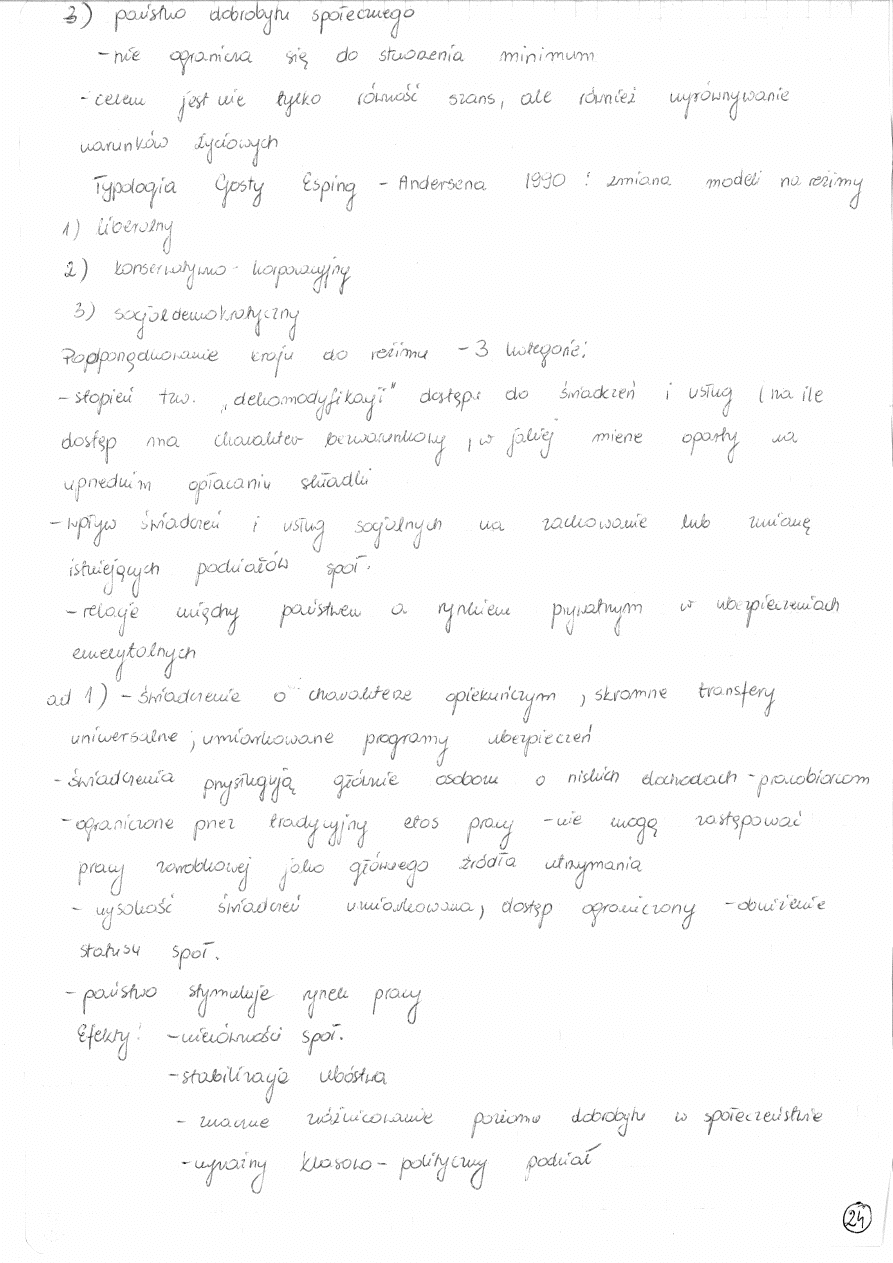 3) państwo dobrobytu społecznego
- nie ogranicza się do stworzenia minimum
- celem jest nie tylko równość szans, ale również wyrównywanie
warunków życiowych
Typologia Gosty Esping - Andersena 1990: zmiana modeli na reżimy
1) liberalny
2) konserwatywno - korporacyjny
3) socjaldemokratyczny
Podporządkowanie kraju do reżimu - 3 kategorie:
- stopień tzw. „dekomodyfikacji" dostępu do świadczeń i usług (na ile
dostęp ma charakter bezwarunkowy, w jakiej mierze oparty na
uprzednim opłacaniu składki
- wpływ świadczeń i usług socjalnych na zachowanie lub zmianę
istniejących podziałów społ.
- relacje między państwem a rynkiem prywatnym w ubezpieczeniach
emerytalnych
ad 1) - świadczenie o charakterze opiekuńczym, skromne transfery
uniwersalne, umiarkowane programy ubezpieczeń
- świadczenia przysługują głównie osobom o niskich dochodach - pracobiorcom
- ograniczone przez tradycyjny etos pracy - nie mogą zastępować
pracy zarobkowej jako głównego źródła utrzymania
- wysokość świadczeń umiarkowana, dostęp ograniczony - obniżenie
statusu społ.
- państwo stymuluje rynek pracy
Efekty: - nierówności społ.
- stabilizacja ubóstwa
- znaczne zróżnicowanie poziomu dobrobytu w społeczeństwie
- wyraźny klasowo - polityczny podział
24